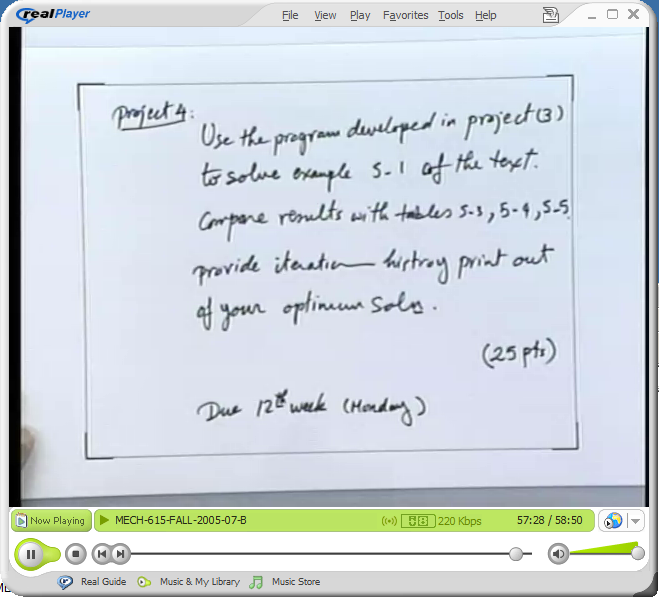 realPlayer
File View Play Favorites Tools Help
Project 4:
Use the program developed in project (3)
to solve example 5-1 of the text.
Compare results with tables 5-3, 5-4, 5-5
provide iteration histroy print out
of your optimum soln.
(25 pts)
Due 12th week (Monday)
Now Playing
MECH-615-FALL-2005-07-B
220 Kbps
57:28 / 58:50
Real Guide
Music & My Library
Music Store